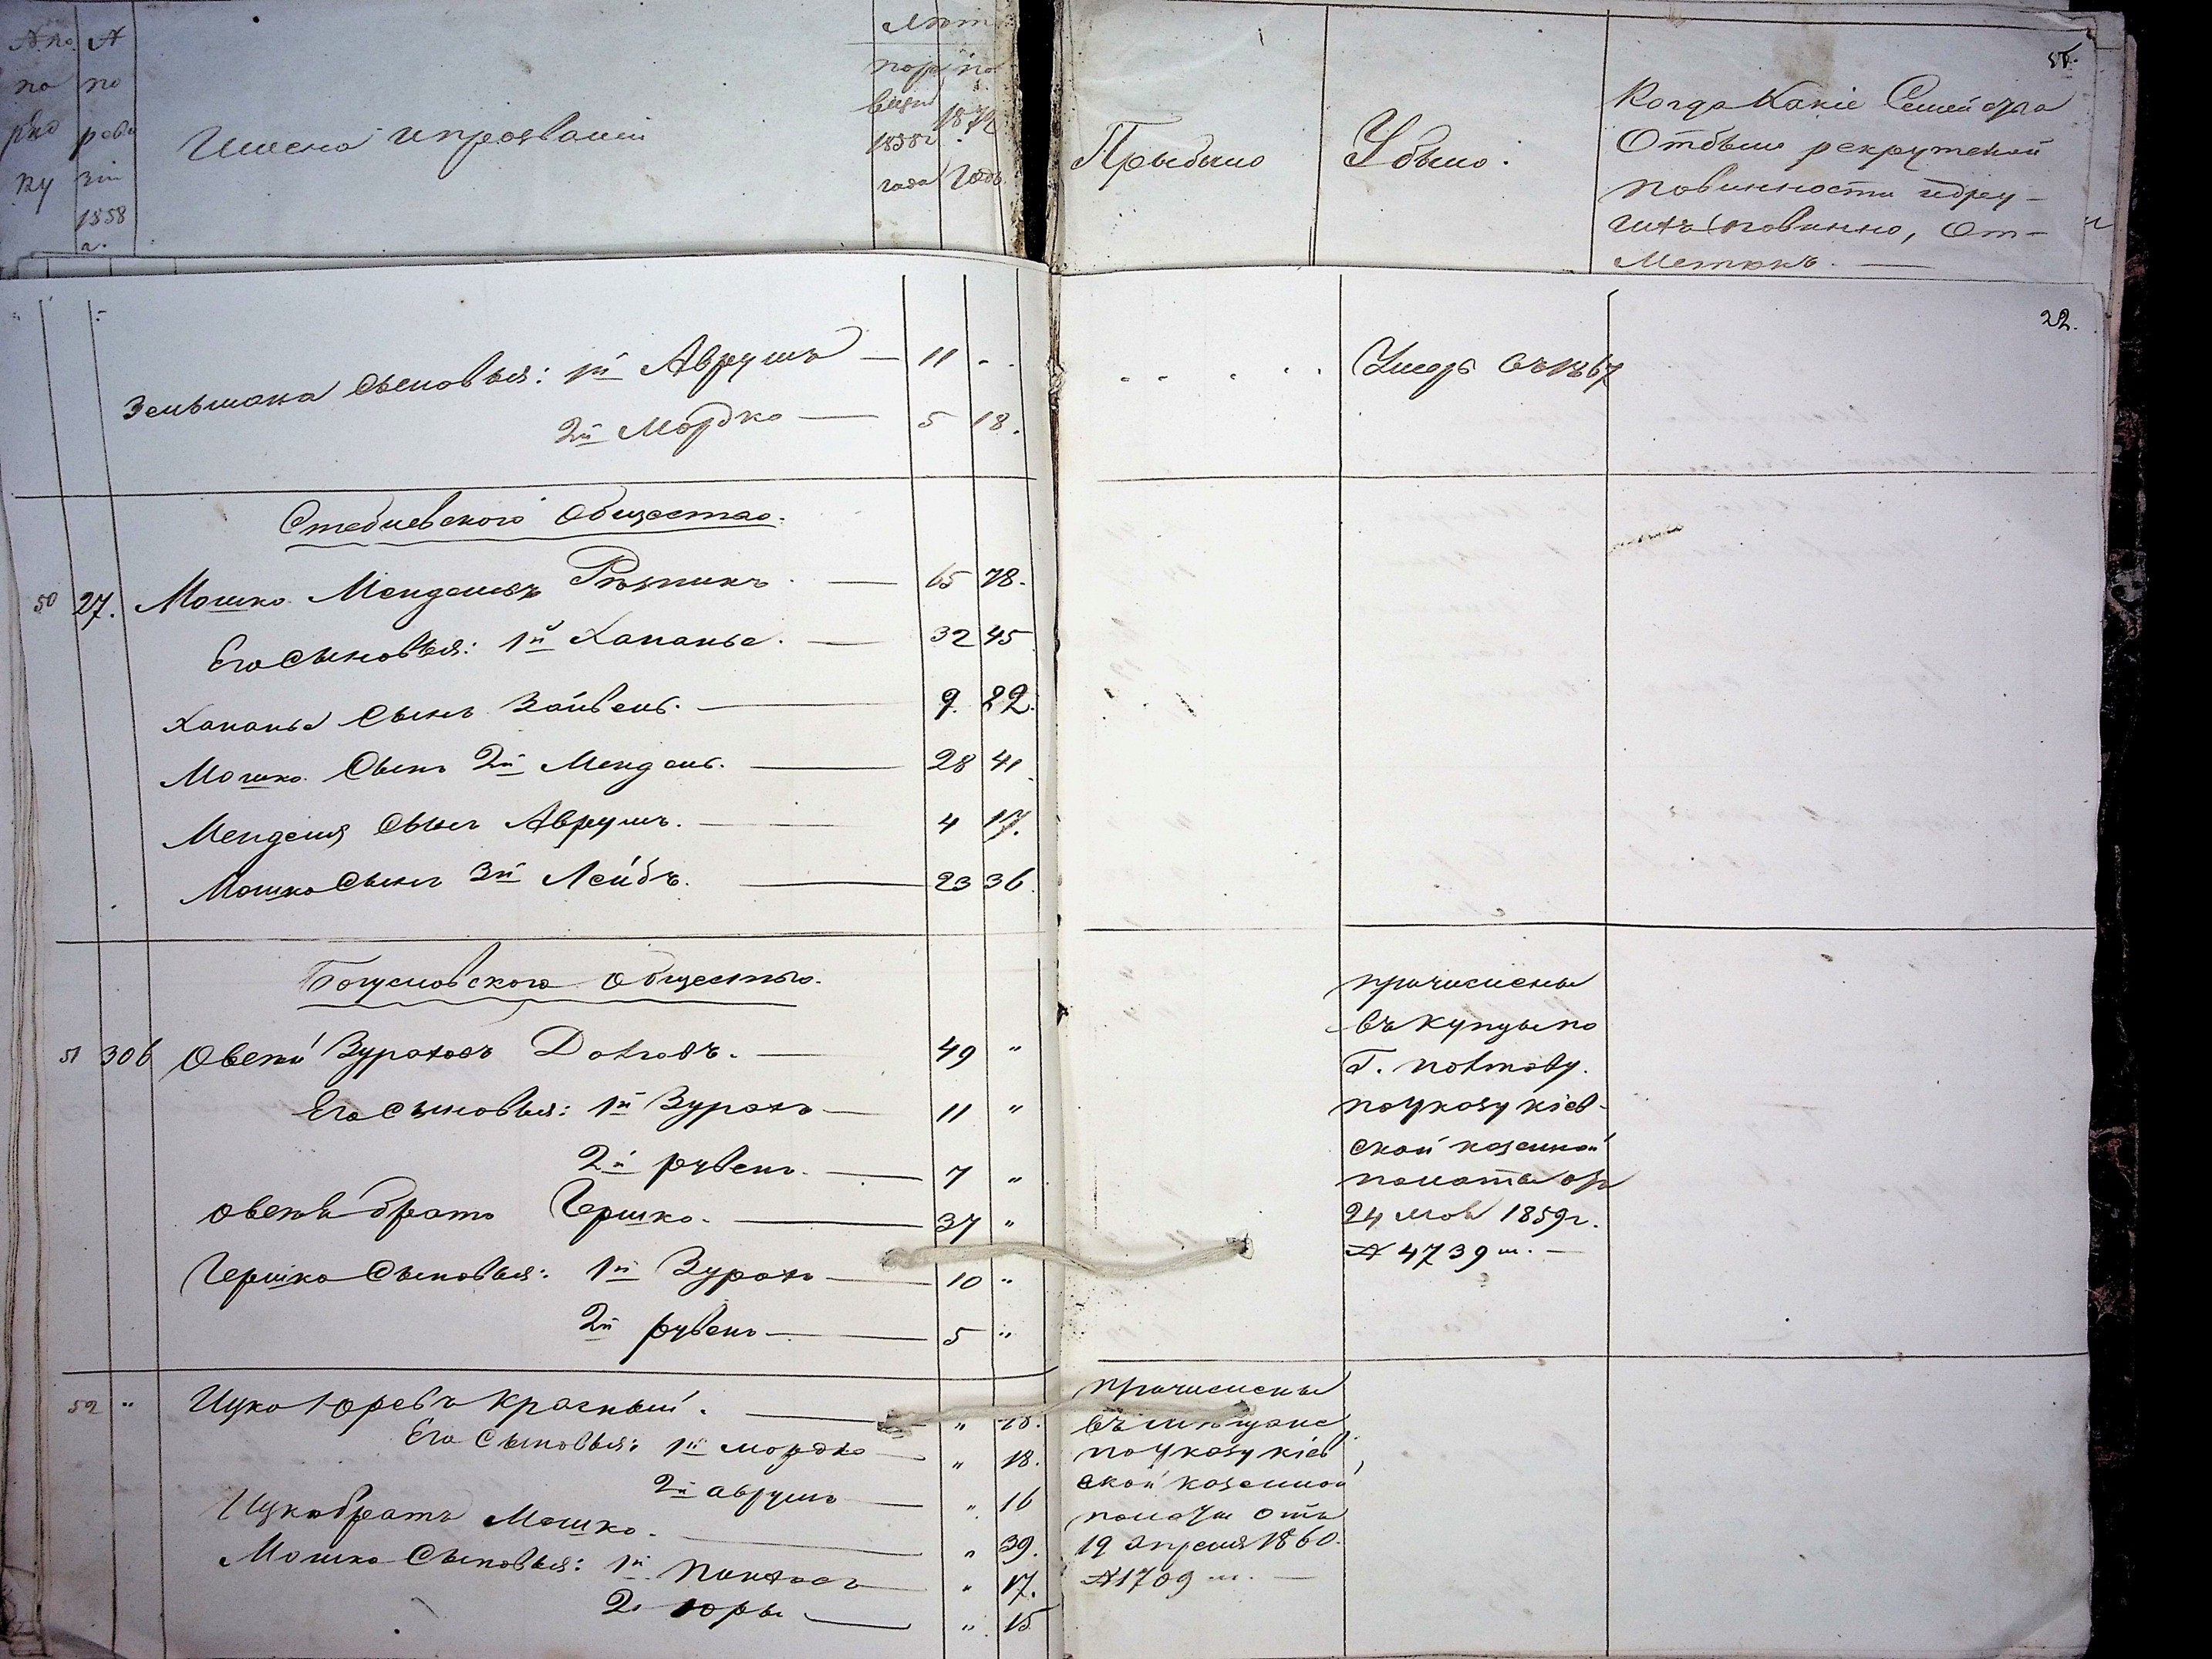 № по порядку
№ по ревизіи 1858 г.
Имена и прозваніи
Лѣта
по ревизіи 1858 г. года
по 1872 годъ
Прибыло
Убыло.
51.
Когда какіе Семейства
Отбыли рекрутской
повинности
повинно, От-
метокъ. —
22.
Зельмана Сыновья: 1й Аврумъ — 11 - . Умеръ въ 1867
2й Мордко — 5 18.
Стеблевского Общества.
50 27. Мошко Менделевъ Рѣзникъ. — 65 78.
Его Сыновья: 1й Хананье. — 32 45
Хананье Сынъ Зайвель. — 9. 22.
Мошко Сынъ 2й Мендель. — 28 41.
Менделя Сынъ Аврумъ. — 4 17.
Мошко Сынъ 3й Лейбъ. — 23 36.
Богуславского Общества.
51 306 Овсей Зураховъ — 49 "
Его Сыновья: 1й Зурахъ — 11 "
2й рувенъ. — 7 "
Овсея братъ Гершко. — 37 "
Гершка Сыновья: 1й Зурахъ — 10 "
2й рувенъ — 5 "
причислены
въ купцы по
Г.
по Указу кіев-
ской казенной
палаты отъ
24 1859 г.
№ 4739 м. —
52 " Ицко Юревъ Красный. — " 18.
Его Сыновья: 1й мордко — " 18.
2й аврумъ — " 16
Ицка братъ Мошко. — " 39.
Мошка Сыновья: 1й Пинхасъ — " 17.
2й юры — " 15
причислены
въ мѣщане
по Указу кіев
ской казенной
палаты отъ
19 апреля 1860.
№ 1709 м. —